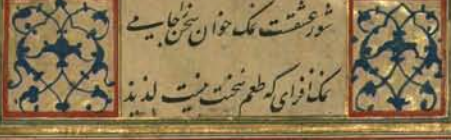 شور عشقست نمک خوان سخن را جامی
نمک افزای که طعم سخنت نیست لذیذ